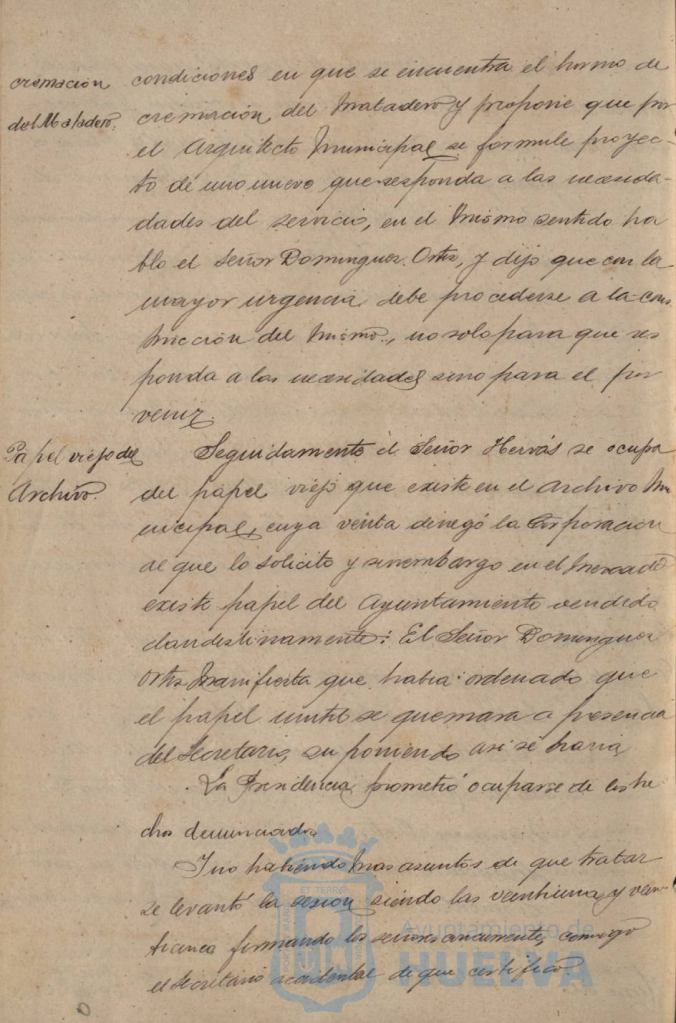 cremación
del Matadero.
condiciones en que se encuentra el horno de
cremación del Matadero y propone que por
el Arquitecto Municipal se formule proyec-
to de uno nuevo que responda a las necesida-
dades del servicio, en el mismo sentido ha
bló el Señor Dominguez Ortiz, y dijo que con la
mayor urgencia debe procederse a la cons
trucción del mismo, no solo para que res
ponda a las necesidades sino para el por
venir.
Papel viejo del
Archivo
Seguidamente el Señor Hervás se ocupa
del papel viejo que existe en el Archivo Mu
nicipal, cuya venta denegó la Corporación
al que lo solicitó y sin embargo en el Mercado
existe papel del Ayuntamiento vendido
clandestinamente: El Señor Dominguez
Ortiz manifiesta que habia ordenado que
el papel inutil se quemara a presencia
del Secretario, suponiendo asi se haria.
La Presidencia prometió ocuparse de los he
chos denunciados
Y no habiendo mas asuntos de que tratar
se levantó la sesion siendo las veintiuna y vein-
ticinco firmando los señores concurrentes, conmigo
el Secretario accidental de que certifico.
Ayuntamiento de
HUELVA